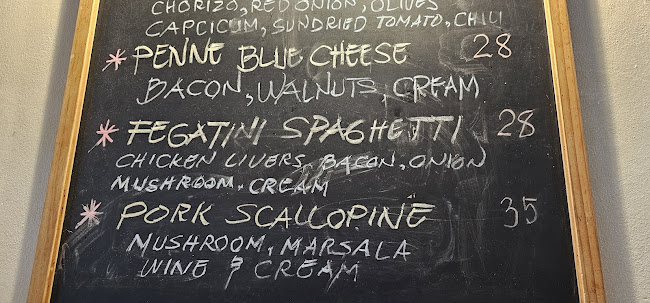 CHORIZO, RED ONION, OLIVES
CAPCICUM, SUNDRIED TOMATO, CHILI
* PENNE BLUE CHEESE 28
BACON, WALNUTS, CREAM
* FEGATINI SPAGHETTI 28
CHICKEN LIVERS, BACON, ONION
MUSHROOM, CREAM
* PORK SCALLOPINE 35
MUSHROOM, MARSALA
WINE & CREAM